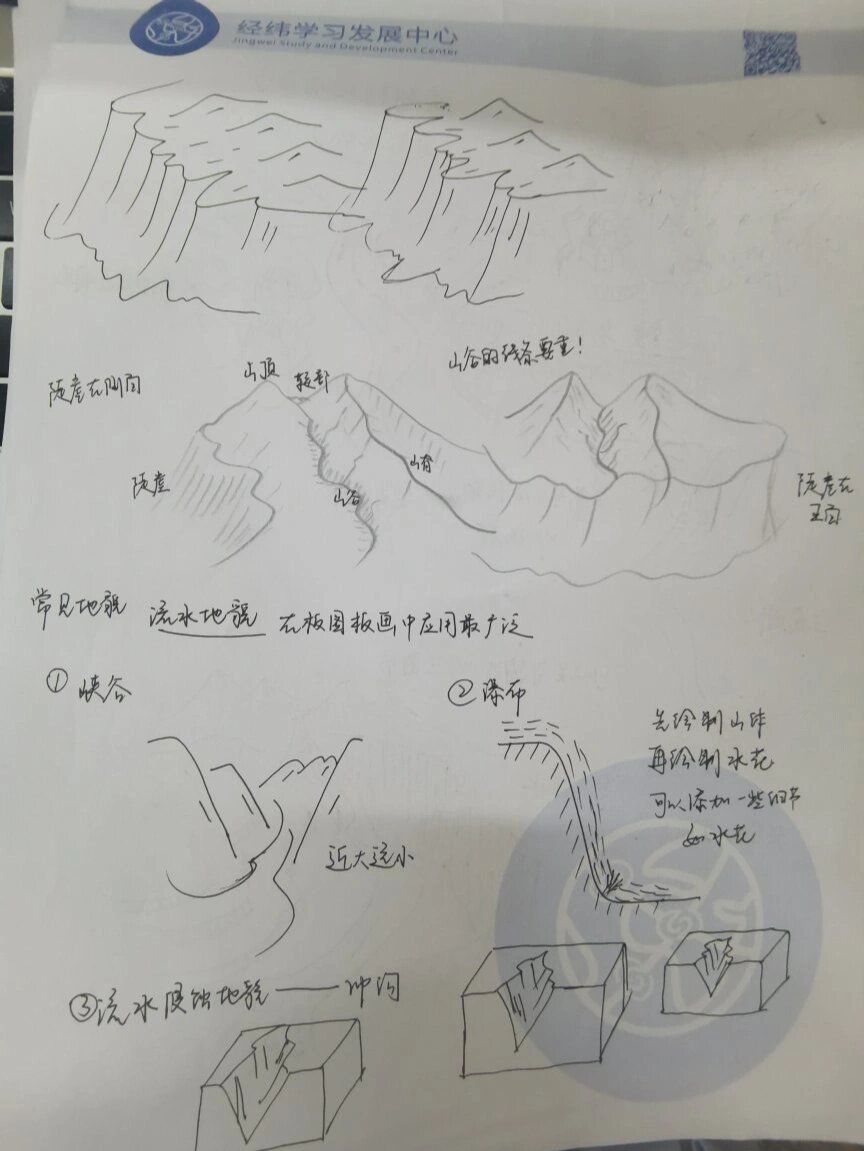 经纬学习发展中心
Jingwei Study and Development Center
山谷的线条要重!
陡崖在侧面
山顶
鞍部
陡崖
山谷
山脊
陡崖在
正面
常见地貌 流水地貌 在板图板画中应用最广泛
① 峡谷
近大远小
② 瀑布
先绘制山体
再绘制水花
可以添加一些细节
如水花
③流水侵蚀地貌——冲沟